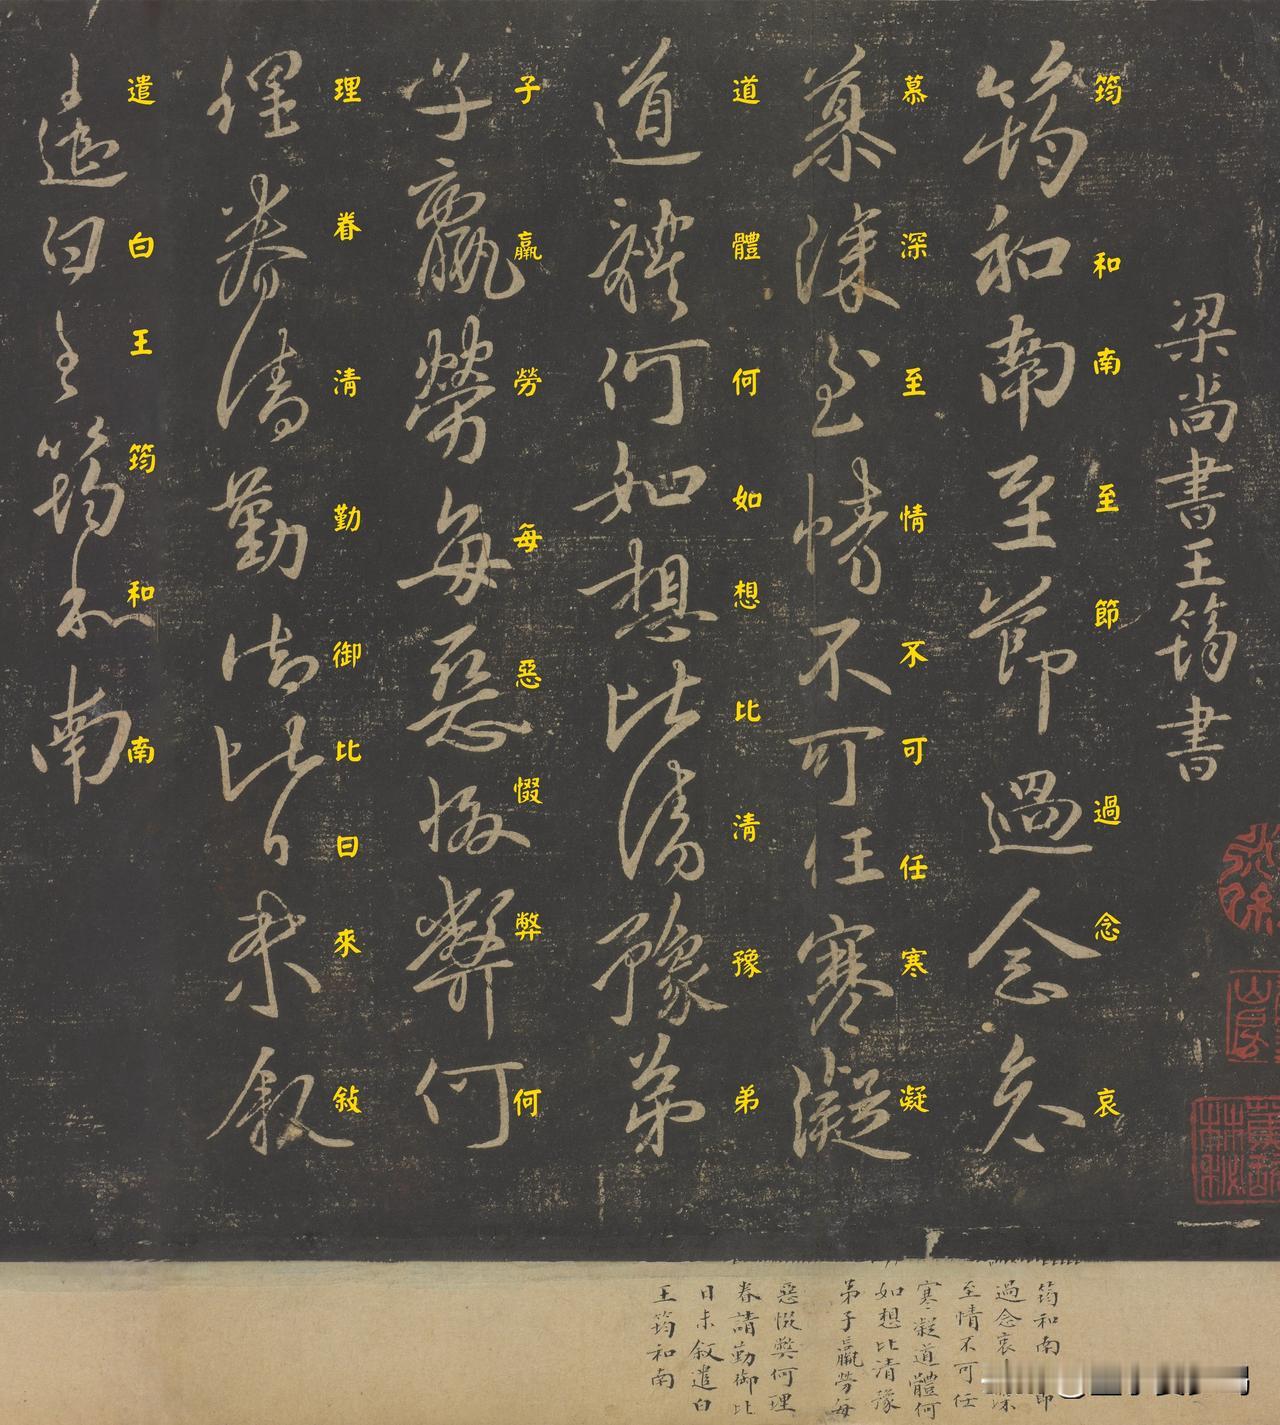 梁尚書王筠書
筠和南至節過念哀
筠和南至節過念哀
慕深至情不可任寒凝
慕深至情不可任寒凝
道體何如想比清豫弟
道體何如想比清豫弟
子羸勞每惡惙弊何
子羸勞每惡惙弊何
理眷清勤御比日來敍
理眷清勤御比日來敍
遣白王筠和南
遣白王筠和南
筠和南
過念哀
至情不可任
寒凝道體何
如想比清豫
弟子羸勞每
惡惙弊何理
眷請勤御比
日未敘遣白
王筠和南